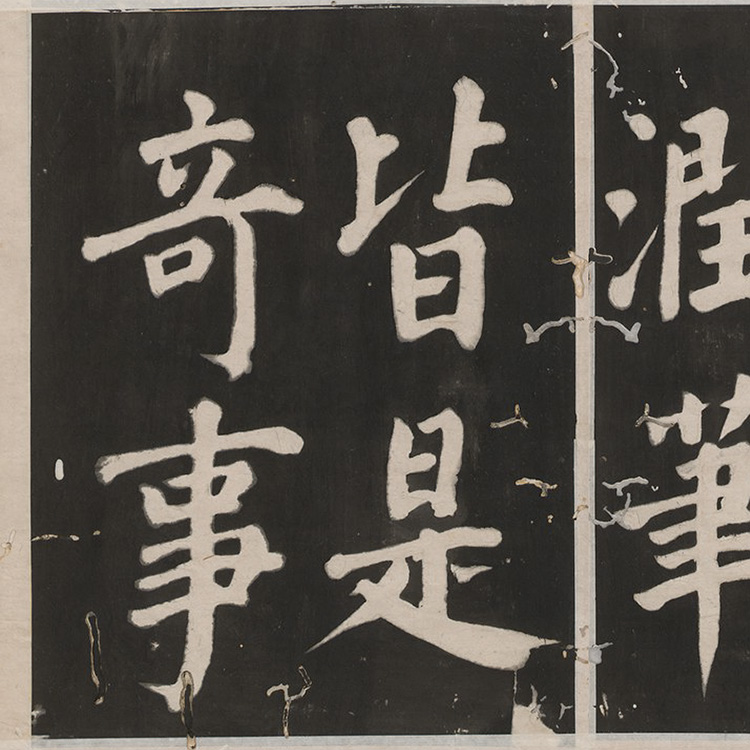 潤筆
皆是
奇事